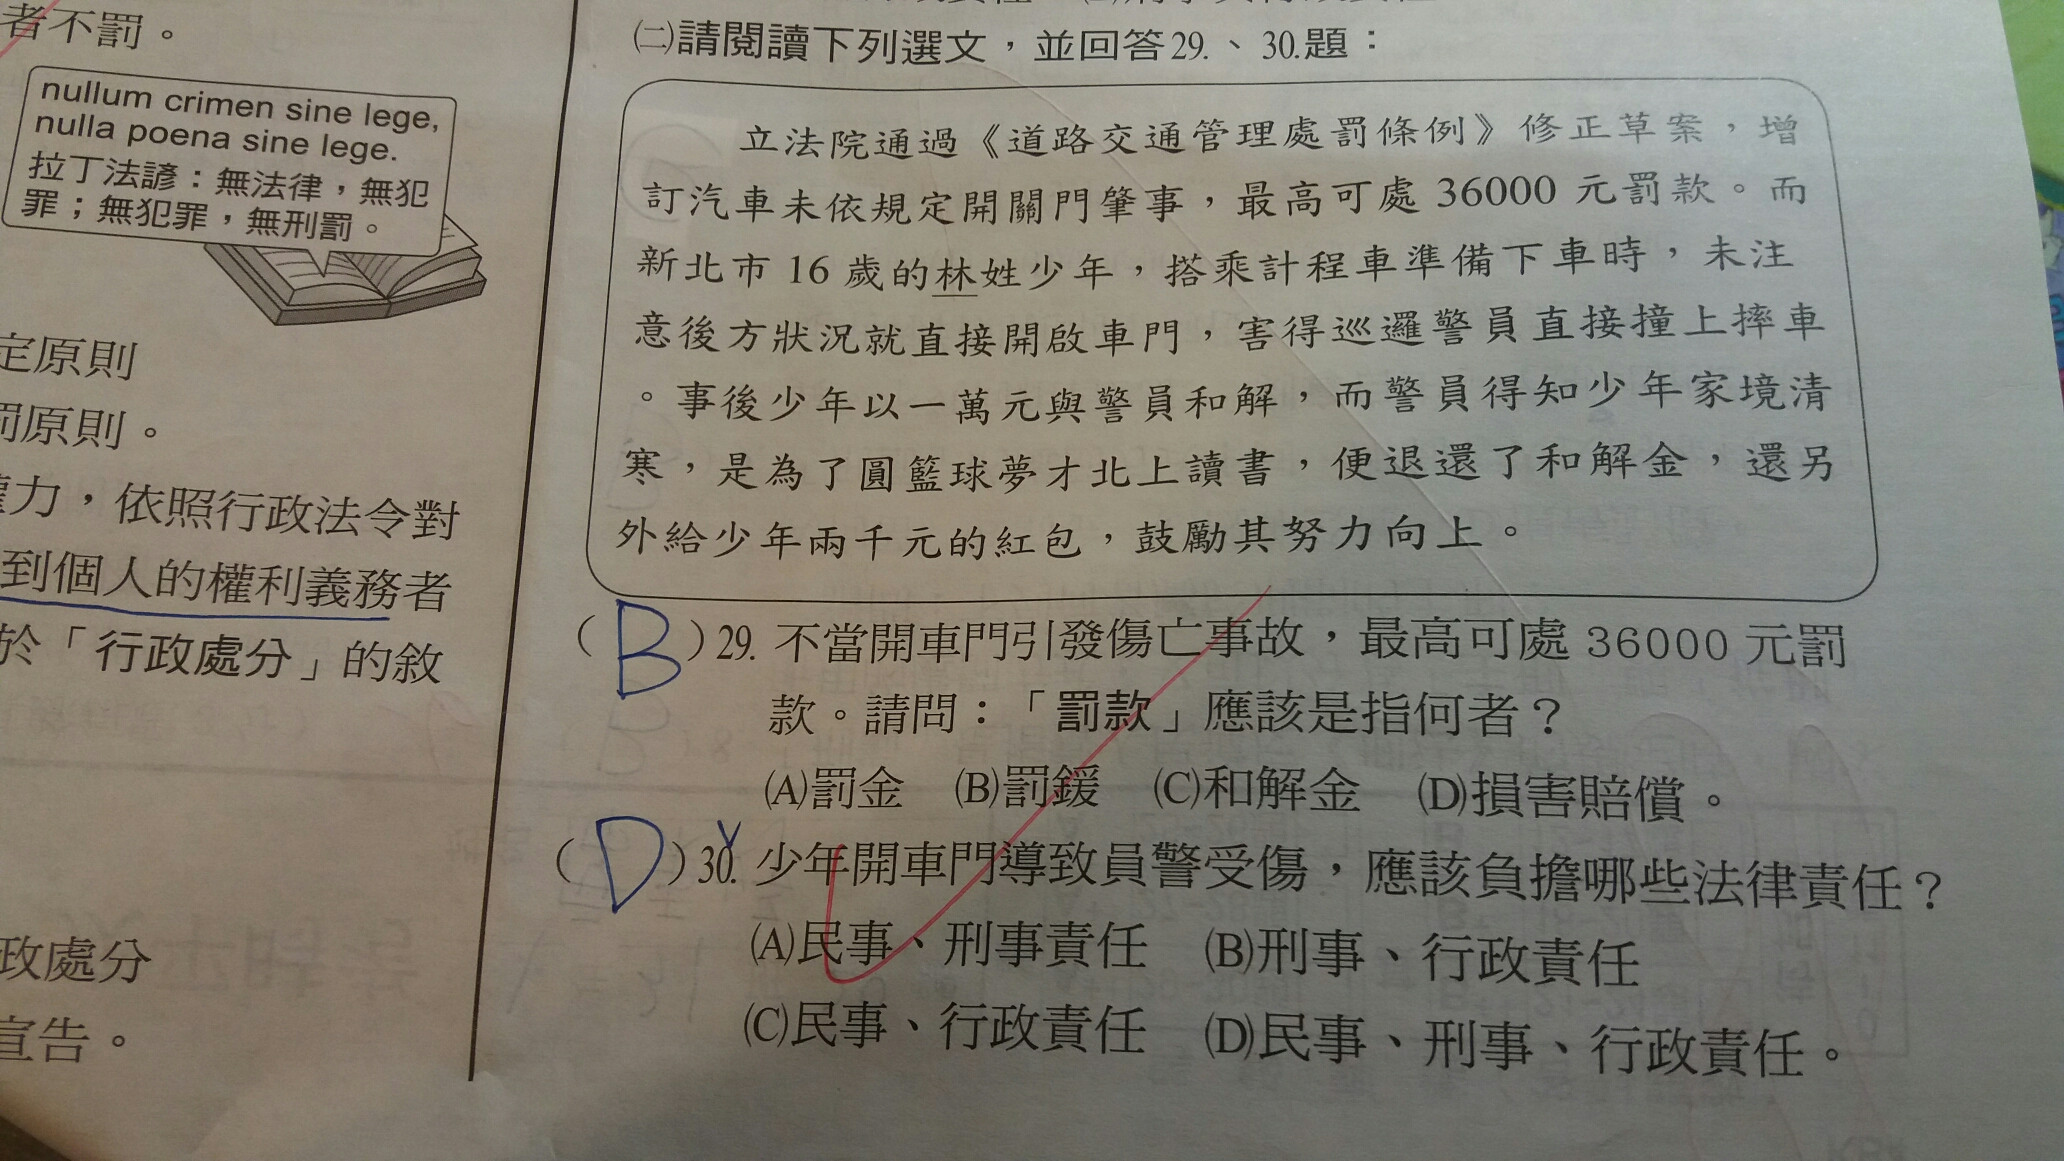 者不罰。
nullum crimen sine lege,
nulla poena sine lege.
拉丁法諺：無法律，無犯
罪；無犯罪，無刑罰。
定原則
罰原則。
權力，依照行政法令對
到個人的權利義務者
於「行政處分」的敘
政處分
宣告。
㈡請閱讀下列選文，並回答29.、30.題：
立法院通過《道路交通管理處罰條例》修正草案，增
訂汽車未依規定開關門肇事，最高可處 36000 元罰款。而
新北市 16 歲的林姓少年，搭乘計程車準備下車時，未注
意後方狀況就直接開啟車門，害得巡邏警員直接撞上摔車
。事後少年以一萬元與警員和解，而警員得知少年家境清
寒，是為了圓籃球夢才北上讀書，便退還了和解金，還另
外給少年兩千元的紅包，鼓勵其努力向上。
（B）29. 不當開車門引發傷亡事故，最高可處 36000 元罰
款。請問：「罰款」應該是指何者？
(A)罰金 (B)罰鍰 (C)和解金 (D)損害賠償。
（D）30. 少年開車門導致員警受傷，應該負擔哪些法律責任？
(A)民事、刑事責任 (B)刑事、行政責任
(C)民事、行政責任 (D)民事、刑事、行政責任。